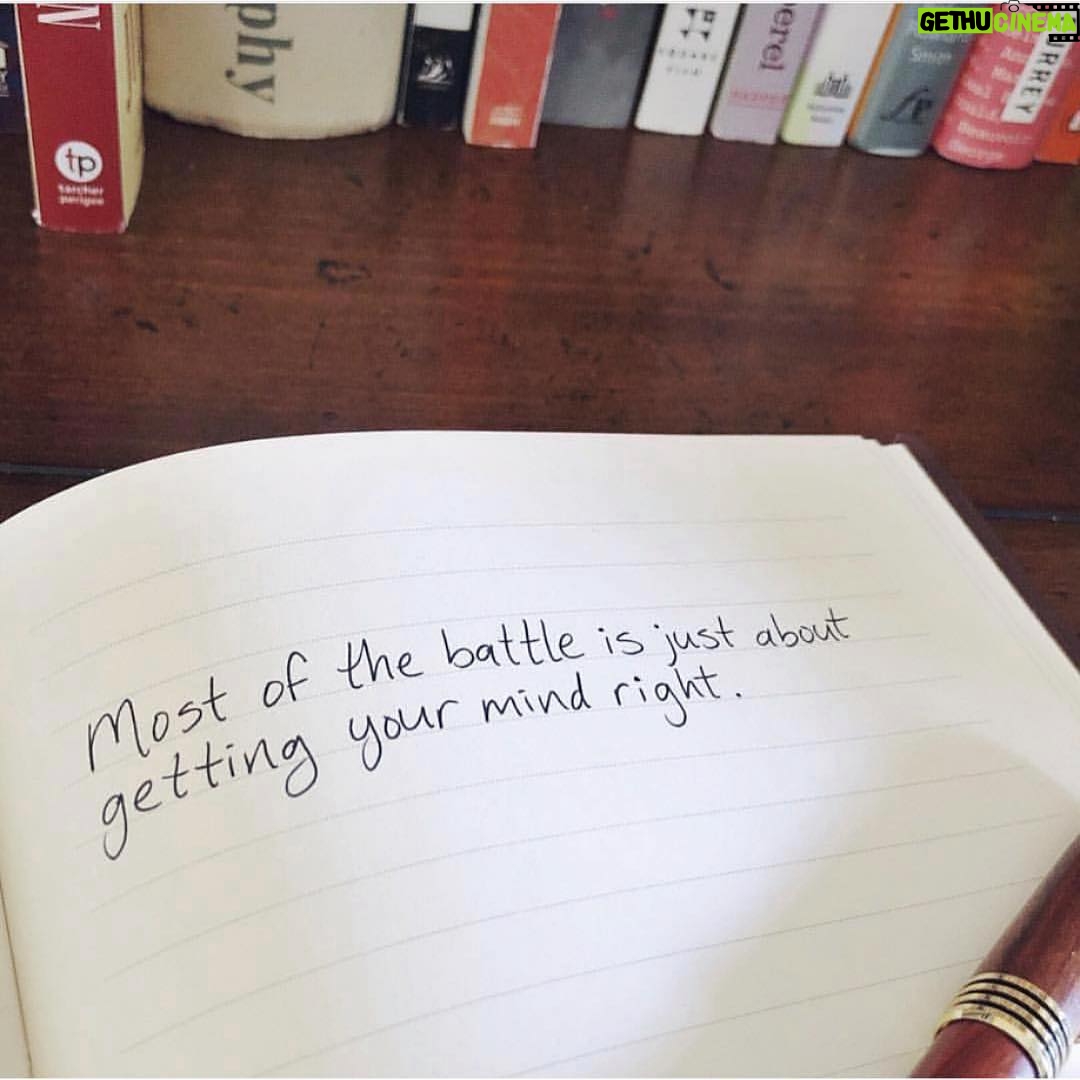 GETHUCINEMA
N
phy
erel
Smith
URREY
tp
tarcher
perigee
Most of the battle is just about
getting your mind right.